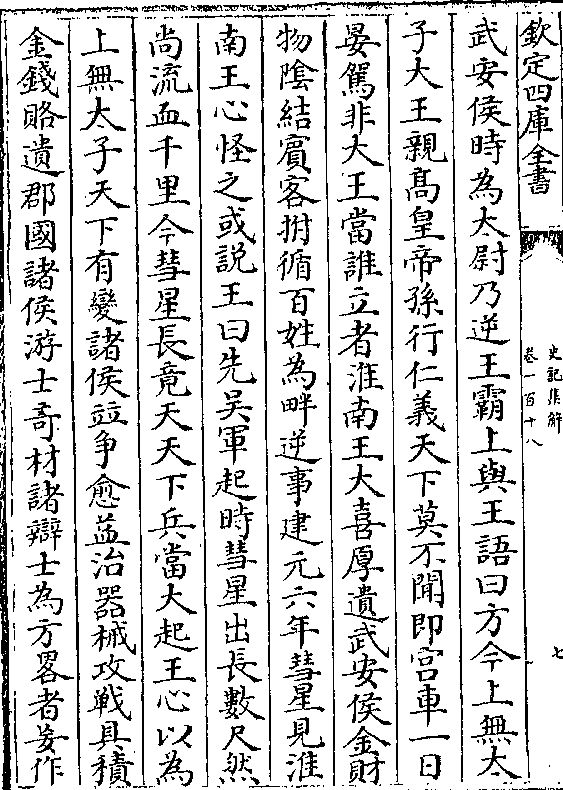 欽定四庫全書
史記集解
卷一百十八
七
武安侯時為太尉乃逆王霸上與王語曰方今上無太
子大王親髙皇帝孫行仁義天下莫不聞即宫車一日
晏駕非大王當誰立者淮南王大喜厚遺武安侯金財
物隂結賔客拊循百姓為畔逆事建元六年彗星見淮
南王心怪之或説王曰先吴軍起時彗星出長數尺然
尚流血千里今彗星長竟天天下兵當大起王心以為
上無太子天下有變諸侯竝争愈益治器械攻戰具積
金錢賂遺郡國諸侯游士奇材諸辯士為方畧者妄作